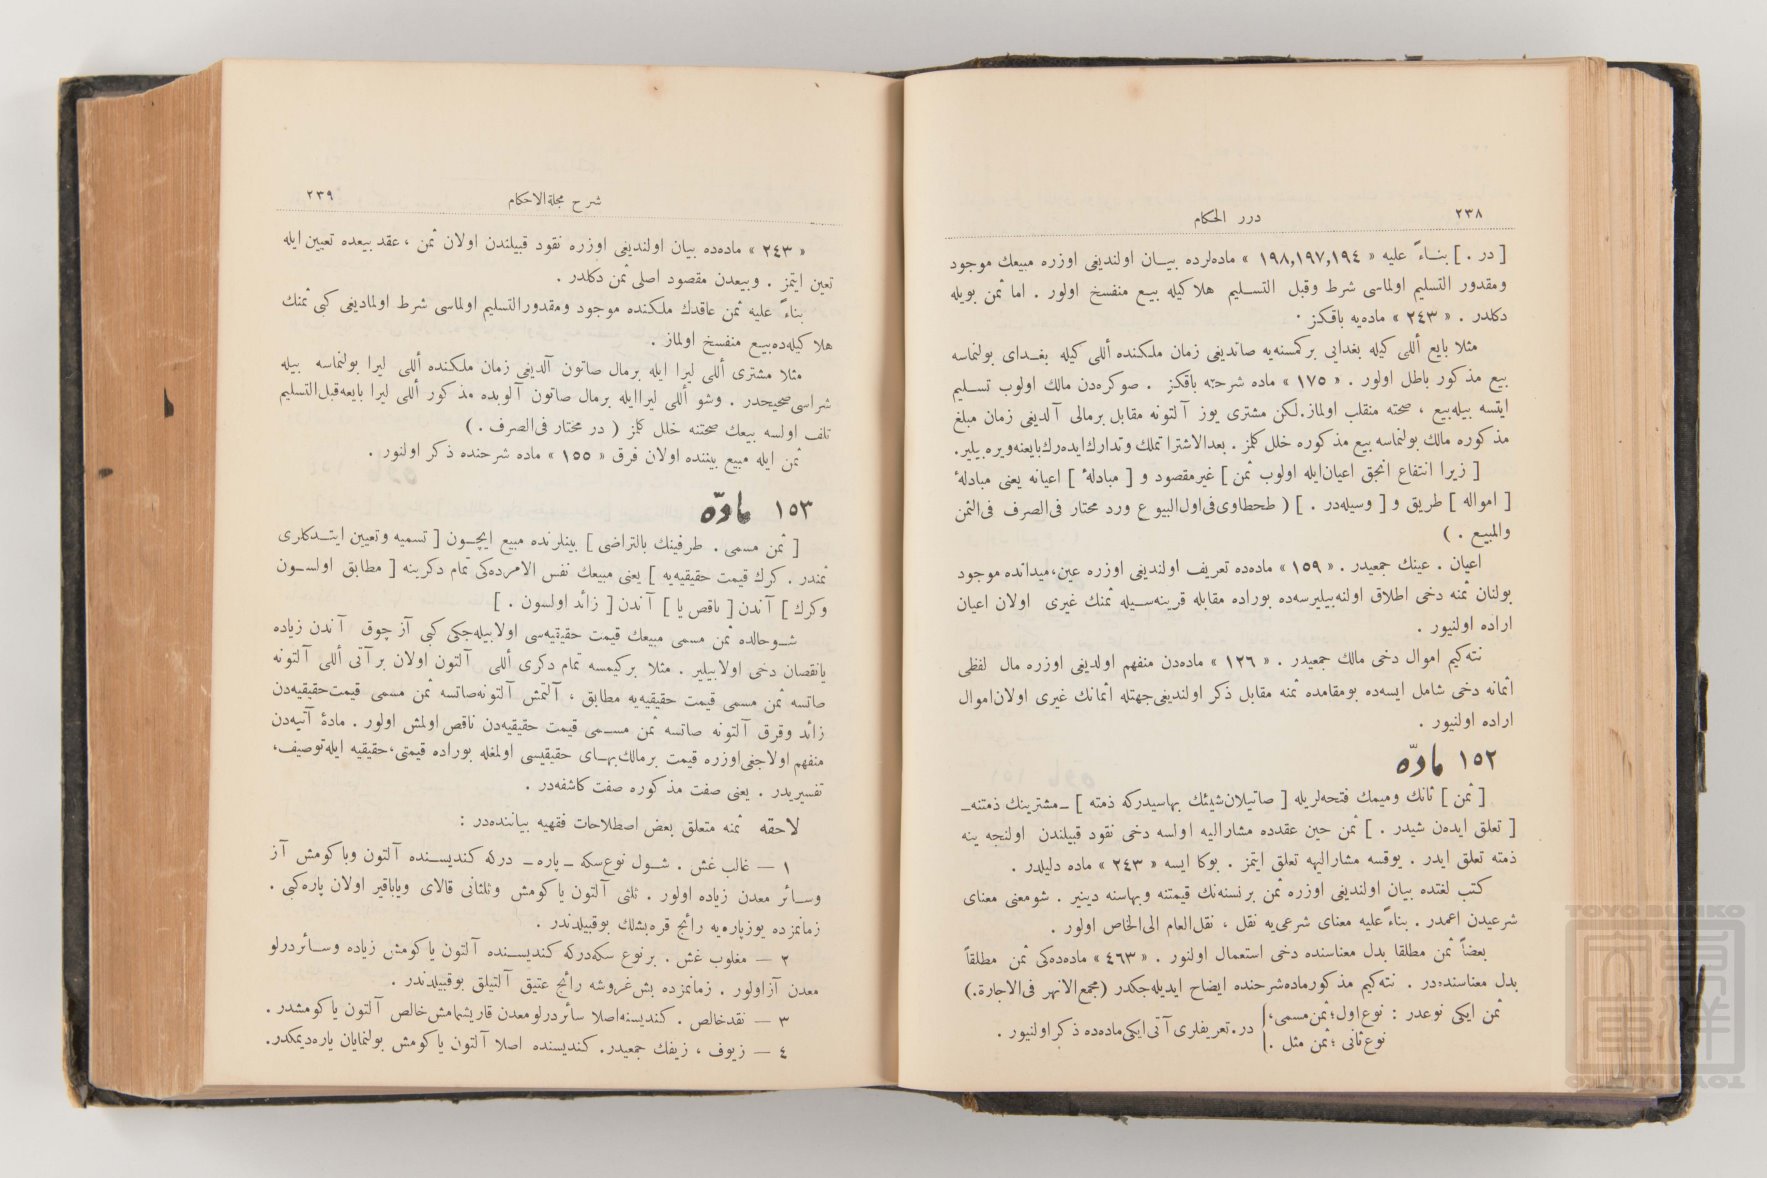 ٢٣٨
درر الحكام
[ در . ] بنــاءً عليه « ١٩٨,١٩٧,١٩٤ » ماده‌لرده بيــان اولنديغى اوزره مبيعك موجود
ومقدور التسليم اولماسى شرط وقبل التسـليم هلا كيله بيـع منفسخ اولور . اما ثمن بويله
دكلدر . « ٢٤٣ » ماده‌يه باقكز .
مثلا بايع أللى كيله بغدايى بركمسنه‌يه صاتديغى زمان ملكنده أللى كيله بغـداى بولنماسه
بيع مذكور باطل اولور . « ١٧٥ » ماده شرحنه باقكز . صوكره‌دن مالك اولوب تسـليم
ايتسه بيله‌بيع ، صحته منقلب اولماز.لكن مشترى يوز آلتونه مقابل برمالى آلديغى زمان مبلغ
مذكوره مالك بولنماسه بيع مذكوره خلل كلز . بعدالاشترا تملك وتدارك‌ايده‌رك‌بايعنه‌ويره‌بيلير.
[ زيرا انتفاع انجق اعيان‌ايله اولوب ثمن ] غيرمقصود و [ مبادلهٔ ] اعيانه يعنى مبادلهٔ
[ امواله ] طريق و [ وسيله‌در . ] ( طحطاوى‌فى‌اول‌البيوع ورد محتار فى‌الصرف فى‌الثمن
والمبيـع . )
اعيان . عينك جمعيدر . « ١٥٩ » ماده‌ده تعريف اولنديغى اوزره عين،ميدانده موجود
بولنان ثمنه دخى اطلاق اولنه‌بيليرسه‌ده بوراده مقابله قرينه‌سـيله ثمنك غيرى اولان اعيان
اراده اولنيور .
نته‌كيم اموال دخى مالك جمعيدر . « ١٢٦ » ماده‌دن منفهم اولديغى اوزره مال لفظى
اثمانه دخى شامل ايسه‌ده بومقامده ثمنه مقابل ذكر اولنديغى‌جهتله اثمانك غيرى اولان‌اموال
اراده اولنيور .
١٥٢ مادّه
[ ثمن ] ثانك وميمك فتحه‌لريله [ صاتيلان‌شيئك بهاسيدركه ذمته ] ـ مشترينك ذمتنه ـ
[ تعلق ايده‌ن شيدر . ] ثمن حين عقدده مشاراليه اولسه دخى نقود قبيلندن اولنجه ينه
ذمته تعلق ايدر . يوقسه مشاراليهه تعلق ايتمز . بوكا ايسه « ٢٤٣ » ماده دليلدر .
كتب لغتده بيان اولنديغى اوزره ثمن برنسنه‌نك قيمتنه وبهاسنه دينير . شومعنى معناى
شرعيدن اعمدر . بناءً عليه معناى شرعى‌يه نقل ، نقل‌العام الى‌الخاص اولور .
بعضاً ثمن مطلقا بدل معناسنده دخى استعمال اولنور . « ٤٦٣ » ماده‌ده‌كى ثمن مطلقاً
بدل معناسنده‌در . نته‌كيم مذكورماده‌شرحنده ايضاح ايديله‌جكدر (مجمع‌الانهر فى‌الاجارة.)
ثمن ايكى نوعدر : نوع‌اول؛ثمن‌مسمى، در.تعريفلرى آتى‌ايكى‌ماده‌ده ذكراولنيور .
نوع‌ثانى ؛ثمن مثل .
شرح مجلةالاحكام
٢٣٩
« ٢٤٣ » ماده‌ده بيان اولنديغى اوزره نقود قبيلندن اولان ثمن ، عقد بيعده تعيين ايله
تعين ايتمز . وبيعدن مقصود اصلى ثمن دكلدر .
بناءً عليه ثمن عاقدك ملكنده موجود ومقدورالتسليم اولماسى شرط اولماديغى كبى ثمنك
هلاكيله‌ده‌بيـع منفسخ اولماز .
مثلا مشترى أللى ليرا ايله برمال صاتون آلديغى زمان ملكنده أللى ليرا بولنماسه بيله
شراسى‌صحيحدر . وشو أللى ليراايله برمال صاتون آلوبده مذكور أللى ليرا بايعه‌قبل‌التسليم
تلف اولسه بيعك صحتنه خلل كلز ( در مختار فى‌الصرف . )
ثمن ايله مبيع بيننده اولان فرق « ١٥٥ » ماده شرحنده ذكر اولنور .
١٥٣ مادّه
[ ثمن مسمى . طرفينك بالتراضى ] بينلرنده مبيع ايچـون [ تسميه وتعيين ايتـدكلرى
ثمندر . كرك قيمت حقيقيه‌يه ] يعنى مبيعك نفس الامرده‌كى تمام دكرينه [ مطابق اولسـون
وكرك ] آندن [ ناقص يا ] آندن [ زائد اولسون . ]
شـوحالده ثمن مسمى مبيعك قيمت حقيقيه‌سى اولابيله‌جكى كبى آز چوق آندن زياده
يانقصان دخى اولابيلير . مثلا بركيمسه تمام دكرى أللى آلتون اولان برآتى أللى آلتونه
صاتسه ثمن مسمى قيمت حقيقيه‌يه مطابق ، آلتمش آلتونه‌صاتسه ثمن مسمى قيمت‌حقيقيه‌دن
زائد وقرق آلتونه صاتسه ثمن مسـمى قيمت حقيقيه‌دن ناقص‌اولمش اولور . مادهٔ آتيه‌دن
منفهم اولاجغى‌اوزره قيمت برمالك‌بهـاى حقيقيسى اولمغله بوراده قيمتى،حقيقيه ايله‌توصيف،
تفسيريدر . يعنى صفت مذكوره صفت كاشفه‌در .
لاحقه ثمنه متعلق بعض اصطلاحات فقهيه بياننده‌در :
١ — غالب غش . شـول نوع‌سكه ـ پاره ـ دركه كنديسـنده آلتون وياكومش آز
وسـائر معدن زياده اولور . ثلثى آلتون ياكومش وثلثانى قالاى وياباقير اولان پاره‌كبى .
زمانمزده يوزپاره‌يه رائج قره‌بشلك بوقبيلدندر .
٢ — مغلوب غش . برنوع سكه‌دركه كنديسـنده آلتون ياكومش زياده وسـائردرلو
معدن آزاولور . زمانمزده بش‌غروشه رائج عتيق آلتيلق بوقبيلدندر .
٣ — نقدخالص . كنديسنه‌اصلا سائردرلومعدن قاريشمامش‌خالص آلتون ياكومشدر .
٤ — زيوف ، زيفك جمعيدر. كنديسنده اصلا آلتون ياكومش بولنمايان پاره‌ديمكدر.